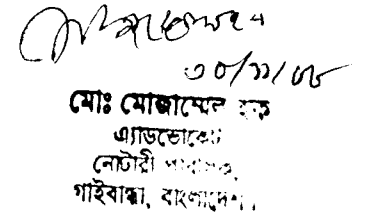 ৩০/১১/০৮
মোঃ মোজাম্মেল হক
এ্যাডভোকেট
নোটারী পাবলিক,
গাইবান্ধা, বাংলাদেশ।